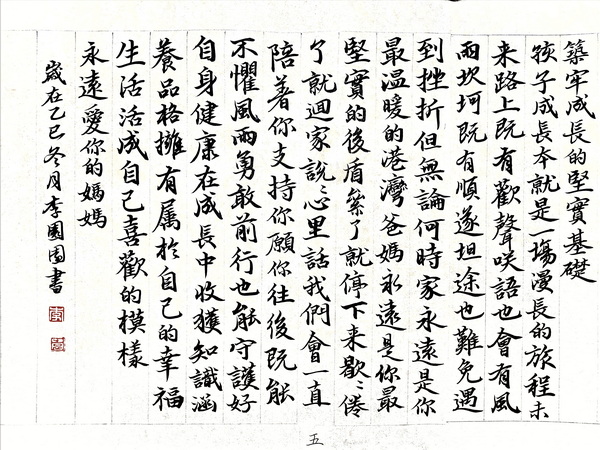 築牢成長的堅實基礎
孩子成長本就是一場漫長的旅程未
来路上既有歡聲咲語也會有風
雨坎坷既有順遂坦途也難免遇
到挫折但無論何時家永遠是你
最温暖的港灣爸媽永遠是你最
堅實的後盾纍了就停下来歇〻倦
了就迴家說〻心里話我們會一直
陪著你支持你願你往後既能
不懼風雨勇敢前行也能守護好
自身健康在成長中收獲知識涵
養品格擁有属於自己的幸福
生活活成自己喜歡的模樣
永遠愛你的媽媽
歲在乙巳冬月李國園書
五